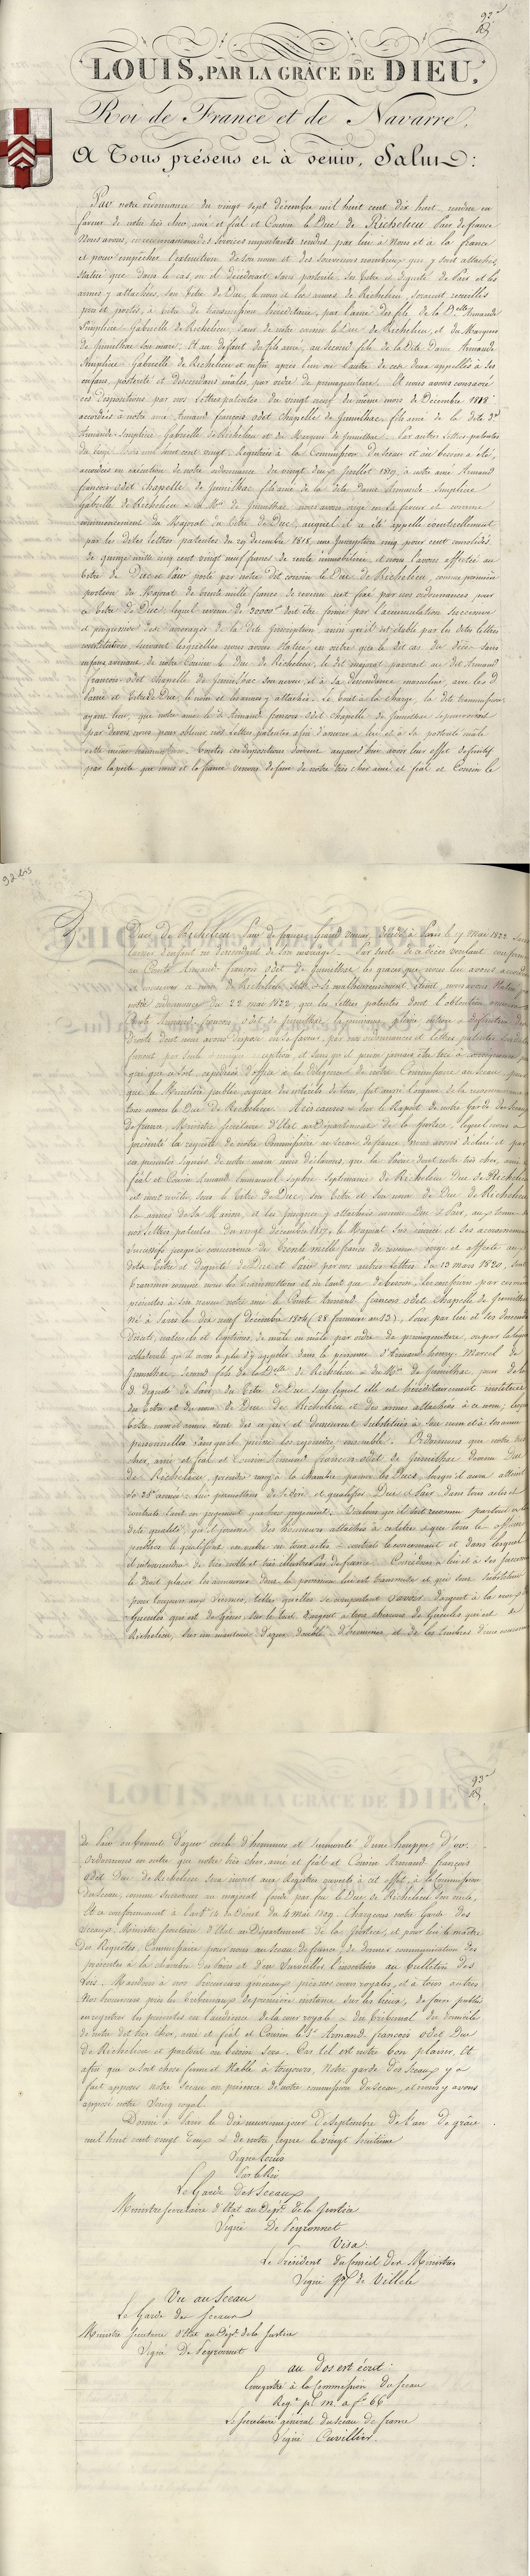 92
LOUIS, PAR LA GRÂCE DE DIEU,
Roi de France et de Navarre,
A Tous présens et à venir, Salut:
Par notre Ordonnance du vingt sept décembre mil huit cent dix huit, rendue en
faveur de notre très cher, amé et féal et Cousin le Duc de Richelieu Pair de france
Nous avons, en reconnaissance des services importants rendus par lui à Nous et à la france
et pour empêcher l'extinction de son nom et des souvenirs nombreux qui y sont attachés,
statué que dans le cas, où il décéderait sans postérité, ses titre et dignité de Pair et les
armes y attachées, son titre de Duc, le nom et les armes de Richelieu, seraient recueillis
pris et portés, à titre de transmission héréditaire, par l'ainé des fils de la Delle Armande
Simplicie Gabrielle de Richelieu, Sœur de notre cousin le Duc de Richelieu, et du Marquis
de Jumilhac son mari. Et au défaut du fils ainé, au second fils de la dite Dame Armande
Simplicie Gabrielle de Richelieu et enfin après l'un ou l'autre de ces deux appellés à ses
enfans, postérité et descendans mâles, par ordre de primogéniture. Et nous avons consacré
ces dispositions par nos Lettres patentes du vingt neuf du même mois de Décembre 1818
accordées à notre amé Armand françois odet Chapelle de Jumilhac, fils ainé de la dite De
Armande Simplicie Gabrielle de Richelieu et du Marquis de Jumilhac. Par autres Lettres patentes
du mil huit cent vingt, Registrées à la Commission du Sceau et où besoin a été,
accordées en exécution de notre ordonnance du vingt deux Juillet 1819, à notre amé Armand
françois odet Chapelle de Jumilhac fils ainé de la dite Dame Armande Simplicie
Gabrielle de Richelieu & du Mis de Jumilhac, nous avons érigé en sa faveur et comme
commencement du Majorat au titre de Duc, auquel il a été appellé éventuellement
par les dites lettres patentes du 29 décembre 1818, une Inscription cinq pour cent consolidés
de quinze mille cinq cent vingt neuf francs de rente immobilisée, et nous l'avons affectée au
titre de Duc et Pair porté par notre Dit cousin le Duc de Richelieu, comme première
portion du Majorat de trente mille francs de revenu net fixé par nos ordonnances, pour
le titre de Duc, lequel revenu de 30000f doit être formé par l'accumulation successive
et progressive des arrérages de la dite Inscription, ainsi qu'il est établi par les dites lettres
constitutives, suivant lesquelles nous avons statué, en outre que le dit cas du décès sans
enfans arrivant de notre Cousin le Duc de Richelieu, le dit majorat passerait au dit Armand
françois odet Chapelle de Jumilhac son neveu, et à sa descendance masculine, avec les d
Pairie et titre de Duc, le nom et les armes y attachées. Le tout à la charge, la dite transmission
ayant lieu, que notre amé le d. Armand françois odet Chapelle de Jumilhac se pourvoirait
par devers nous pour obtenir nos Lettres patentes afin d'assurer à lui et à sa postérité mâle
cette même transmission. Toutes ces dispositions doivent aujourd'hui avoir leur effet définitif
par la perte que nous et la france venons de faire de notre très cher amé et féal et Cousin le
92 bis
Duc de Richelieu, Pair de france, Grand Veneur, décédé à Paris le 17 Mai 1822 sans
laisser d'enfant ni descendant de son mariage. Par suite de ce décès voulant confirmer
au Comte Armand françois odet de Jumilhac les graces que nous lui avons accordées
notre ordonnance du 22 mai 1822 que les lettres patentes dont l'obtention
Droits dont nous avons disposé en sa faveur, par nos ordonnances et Lettres patentes
que ce soit, expédiées d'office à la diligence de notre Commissaire au Sceau
que le Ministère public, organe des intérêts de tous, fut aussi l'organe de la reconnaissance
tous envers le Duc de Richelieu. A ces causes sur le Rapport de notre Garde des Sceaux
de france Ministre Secrétaire d'Etat au Département de la Justice, lequel nous a
présenté la requête de notre Commissaire au Sceau de france, nous avons déclaré et par
ces présentes signées de notre main nous déclarons, que la Pairie dont notre très cher, amé
féal et Cousin Armand Emmanuel Sophie Septimanie de Richelieu Duc de Richelieu
est mort revêtu, sous le titre de Duc, son titre et son nom de Duc de Richelieu
les armes de Sa Maison, et les Insignes y attachées comme Duc & Pair, aux termes
nos Lettres patentes du vingt décembre 1817, le Majorat sus énoncé et ses accroissemens
successifs jusqu'à concurrence de trente mille francs de revenu érigé et affecté aux
dits titre et dignité de Duc et Pair par nos autres Lettres du 13 mars 1820, sont
transmis comme nous les transmettons et en tant que de besoin, les assurons par ces mêmes
présentes à son neveu notre amé le Comte Armand, françois odet Chapelle de Jumilhac
Né à Paris le dix neuf décembre 1804 (28 frimaire an 13), pour par lui et ses descendans
directs, naturels et légitimes, de mâle en mâle par ordre de primogéniture, ou par la ligne
collatérale qu'il nous a plu d'y appeler dans la personne d'Armand henry Marcel de
Jumilhac, second fils de la Delle de Richelieu & du Mis de Jumilhac, jouir de la
d. dignité de Pair, du titre de Duc sous lequel elle est héréditairement instituée
du titre et du nom de Duc de Richelieu et des armes attachées à ce nom; lesquels
titre nom et armes sont dès ce jour et demeurent substitués à son nom et à ses armes
personnelles sans qu'il puisse les reprendre ensemble. Ordonnons que notre très
cher, amé et féal et Cousin Armand françois odet de Jumilhac devenu Duc
de Richelieu, prendra rang à la chambre parmi les Ducs, lorsqu'il aura atteint
sa 25e année: lui permettons de se dire et qualifier Duc & Pair dans tous actes et
contrats tant en jugement que hors jugement. Voulons qu'il soit reconnu partout en
dite qualité, qu'il jouisse des honneurs attachés à ce titre & que tous les officiers
publics le qualifient en outre en tous actes & contrats le concernant et dans lesquels
il interviendra de très noble et très illustre Pair de france. Concédons à lui et à ses successeurs
le droit placer les armoiries dont la possession lui est transmise et qui sont substituées
pour toujours aux siennes, telles qu'elles se comportent savoir: d'argent à la croix de
Gueules qui est de Gênes, sur le tout, d'argent à trois chevrons de Gueules qui est de
Richelieu, sur un manteau d'azur doublé d'hermines, et de les timbrer d'une couronne
93
de Pair ou bonnet d'azur cerclé d'hermines et surmonté d'une houppe d'or.
Ordonnons en outre que notre très cher, amé et féal et Cousin Armand françois
odet Duc de Richelieu sera inscrit aux Registres ouverts à cet effet, à la Commission
du Sceau, comme successeur au majorat fondé par feu le Duc de Richelieu son oncle,
Et ce conformément à l'art. 14 du Décret du 4 Mai 1809. Chargeons notre Garde des
Sceaux, Ministre Secrétaire d'Etat au Département de la Justice, et pour lui le maître
des Requêtes, Commissaire pour nous au Sceau de france de donner communication des
présentes à la chambre des Pairs et d'en surveiller l'insertion au bulletin des
Lois. Mandons à nos Procureurs généraux près nos cours royales, et à tous autres
Nos Procureurs près les Tribunaux de première instance sur les lieux, de faire publier
& enregistrer les présentes en l'audience de la cour royale & du Tribunal du domicile
de notre dit très cher, amé et féal et Cousin le Sr Armand françois odet Duc
de Richelieu et partout où besoin sera. Car tel est notre bon plaisir. Et
afin que ce soit chose ferme et stable à toujours, Notre garde des Sceaux y a
fait apposer notre Sceau en présence de notre commission du Sceau, et nous y avons
apposé notre Seing royal.
Donné à Paris le dix neuvieme jour de Septembre de l'an de grâce
mil huit cent vingt deux & de notre règne le vingt huitième
Signé Louis
Par le Roi
Le Garde des Sceaux
Ministre Secretaire d'Etat au Dept de la Justice
Signé De Peyronnet
Visa.
Le Président du Conseil des Ministres
Signé Jph de Villele
Vu au Sceau
Le Garde des Sceaux
Ministre Secretaire d'Etat au Dept de la Justice
Signé De Peyronnet
au dos est écrit:
Enregistré à la Commission du Sceau
Regre pl m. a fo 66
Le Secretaire général du sceau de france
Signé Cuvillier.